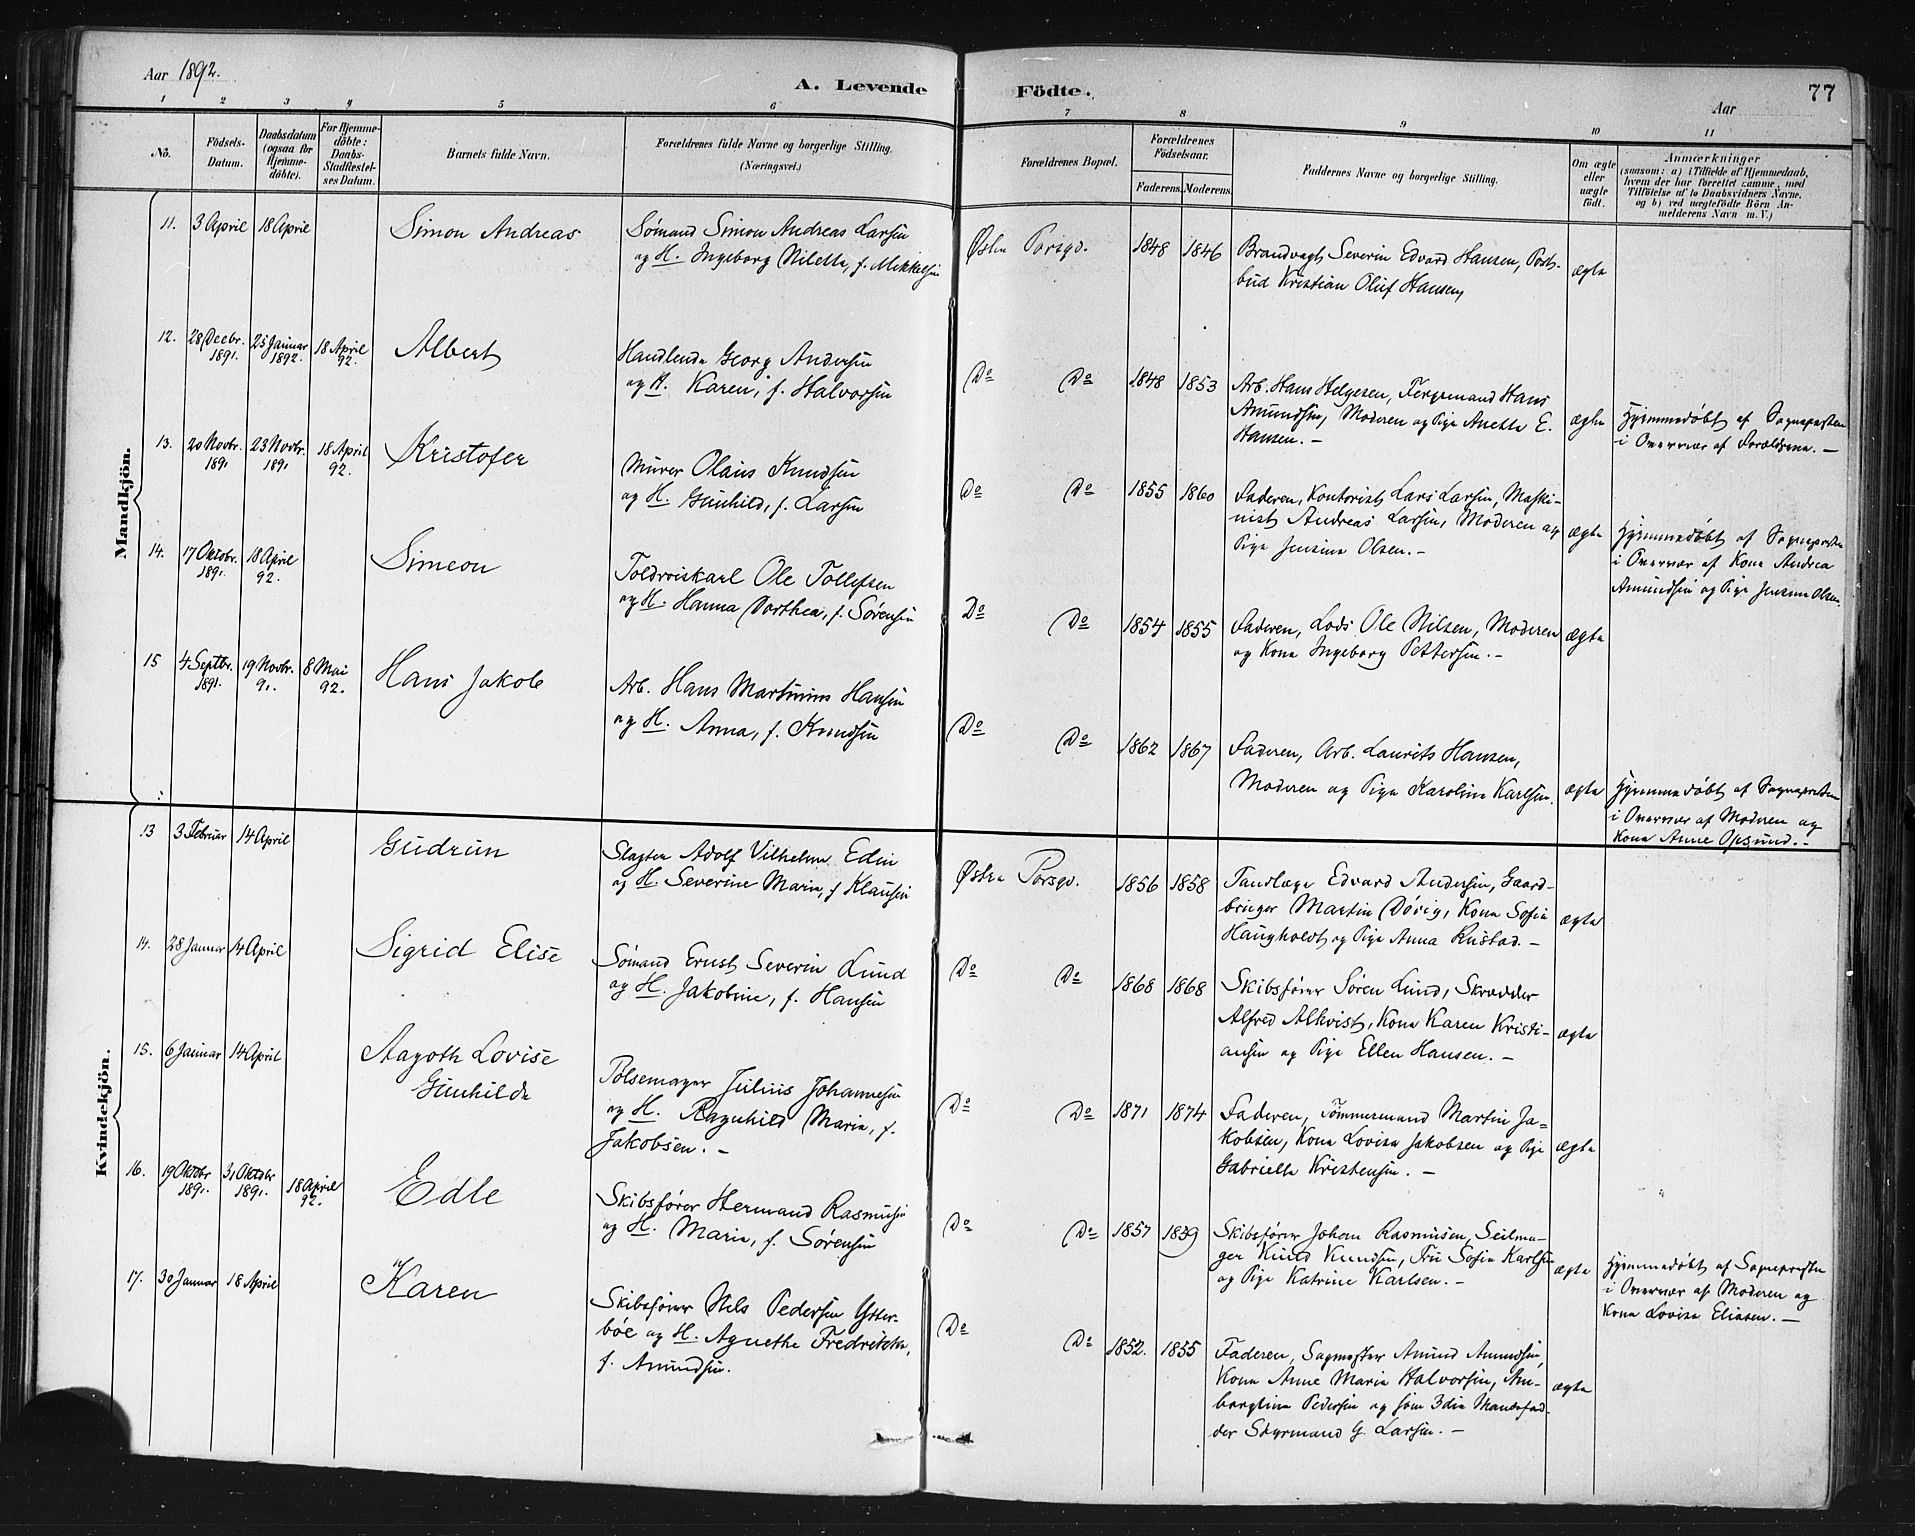 Aar 1892.
A. Levende Födte.
Aar
77
1 2 3 4 5 6 7 8 9 10 11
No.
Födsels-Datum.
Daabsdatum (ogsaa for Hjemme-döbte).
For Hjemme-döbte: Daabs-Stadfæstel-ses Datum.
Barnets fulde Navn.
Forældrenes fulde Navne og borgerlige Stilling. (Næringsvei.)
Forældrenes Bopæl.
Forældrenes Födselsaar.
Faderens. Moderens.
Faddernes Navne og borgerlige Stilling.
Om ægte eller uægte födt.
Anmærkninger
(saasom: a) i Tilfælde af Hjemmedaab,
hvem der har forrettet samme, med
Tilföielse af to Daabsvidners Navne,
og b) ved uægtefödte Börn An-
melderens Navn m. V.)
Mandkjön.
11. 3 April 18 April Simon Andreas
Sømand Simon Andreas Larsen
og H. Ingeborg Nilette, f. Mikkelsen
Østre Porsgr. 1848 1846
Brandvagt Severin Edvard Hansen, Post-
bud Kristian Oluf Hansen,
ægte
12. 28 Decbr. 1891. 25 Januar 1892. 18 April 92. Albert
Handlende Georg Andersen
og H. Karen, f. Halvorsen
Do Do 1848 1853
Arb. Hans Helgesen, Fergemand Hans
Amundsen, Moderen og Pige Anette E.
Hansen. -
ægte
Hjemmedøbt af Sognepresten
i Overvær af Forældrene. -
13. 20 Novbr. 1891 23 Novbr. 1891 18 April 92. Kristofer
Murer Olaus Knudsen
og H. Gunhild, f. Larsen
Do Do 1855 1860
Faderen, Kontorist Lars Larsen, Maski-
nist Andreas Larsen, Moderen og
Pige Jensine Olsen. -
ægte
Hjemmedøbt af Sognepresten
i Overvær af Kone Andrea
Amundsen og Pige Jensine Olsen.
14. 17 Oktobr. 1891. 18 April 92. Simeon
Toldroiskarl Ole Tollefsen
og H. Hanna Dorthea, f. Sørensen
Do Do 1854 1855
Faderen, Lods Ole Nilsen, Moderen
og Kone Ingeborg Pettersen. -
ægte
15 4 Septbr. 1891. 19 Novbr. 91. 8 Mai 92. Hans Jakob
Arb. Hans Martinius Hansen
og H. Anna, f. Knudsen
Do Do 1862 1867
Faderen, Arb. Laurits Hansen,
Moderen og Pige Karoline Karlsen.
ægte
Hjemmedøbt af Sognepresten
i Overvær af Moderen og
Kone Anne Opsund. -
Kvindekjön.
13 3 Februar 14 April Gudrun
Slagter Adolf Vilhelm Edin
og H. Severine Marie, f. Klausen
Østre Porsgr. 1856 1858
Tandlæge Edvard Andersen, Gaard-
bruger Martin Dörig, Kone Sofie
Haugholdt og Pige Anna Rustad. -
ægte
14. 28 Januar 14 April Sigrid Elise
Sømand Ernst Severin Lund
og H. Jakobine, f. Hansen
Do Do 1868 1868
Skibsfører Søren Lund, Skrædder
Alfred Alkvist, Kone Karen Kristi-
ansen og Pige Ellen Hansen. -
ægte
15. 6 Januar 14 April Aagoth Lovise
Gunhilde
Pølsemager Julius Johannesen
og H. Ragnhild Marie, f.
Jakobsen. -
Do Do 1871 1874
Faderen, Tömmermand Martin Ja-
kobsen, Kone Lovise Jakobsen og Pige
Gabrielle Kristensen. -
ægte
16. 19 Oktobr 1891. 31 Oktobr 1891. 18 April 92. Edle
Skibsfører Hermand Rasmusen
og H. Marie, f. Sørensen
Do Do 1857 1859
Skibsfører Johan Rasmusen, Seilma-
ger Knud Knudsen, Fru Sofie Karlsen
og Pige Katrine Karlsen. -
ægte
Hjemmedøbt af Sognepresten
i Overvær af Moderen og
Kone Lovise Eliasen. -
17. 30 Januar 18 April Karen
Skibsfører Nils Pedersen Ytter-
bøe og H. Agnethe Fredrikke,
f. Amundsen.
Do Do 1852. 1855
Faderen, Sagmester Amund Amundsen,
Kone Anne Marie Halvorsen, An-
borgline Pedersen og som 3die Mandsfad-
der Styrmand G. Larsen. -
ægte